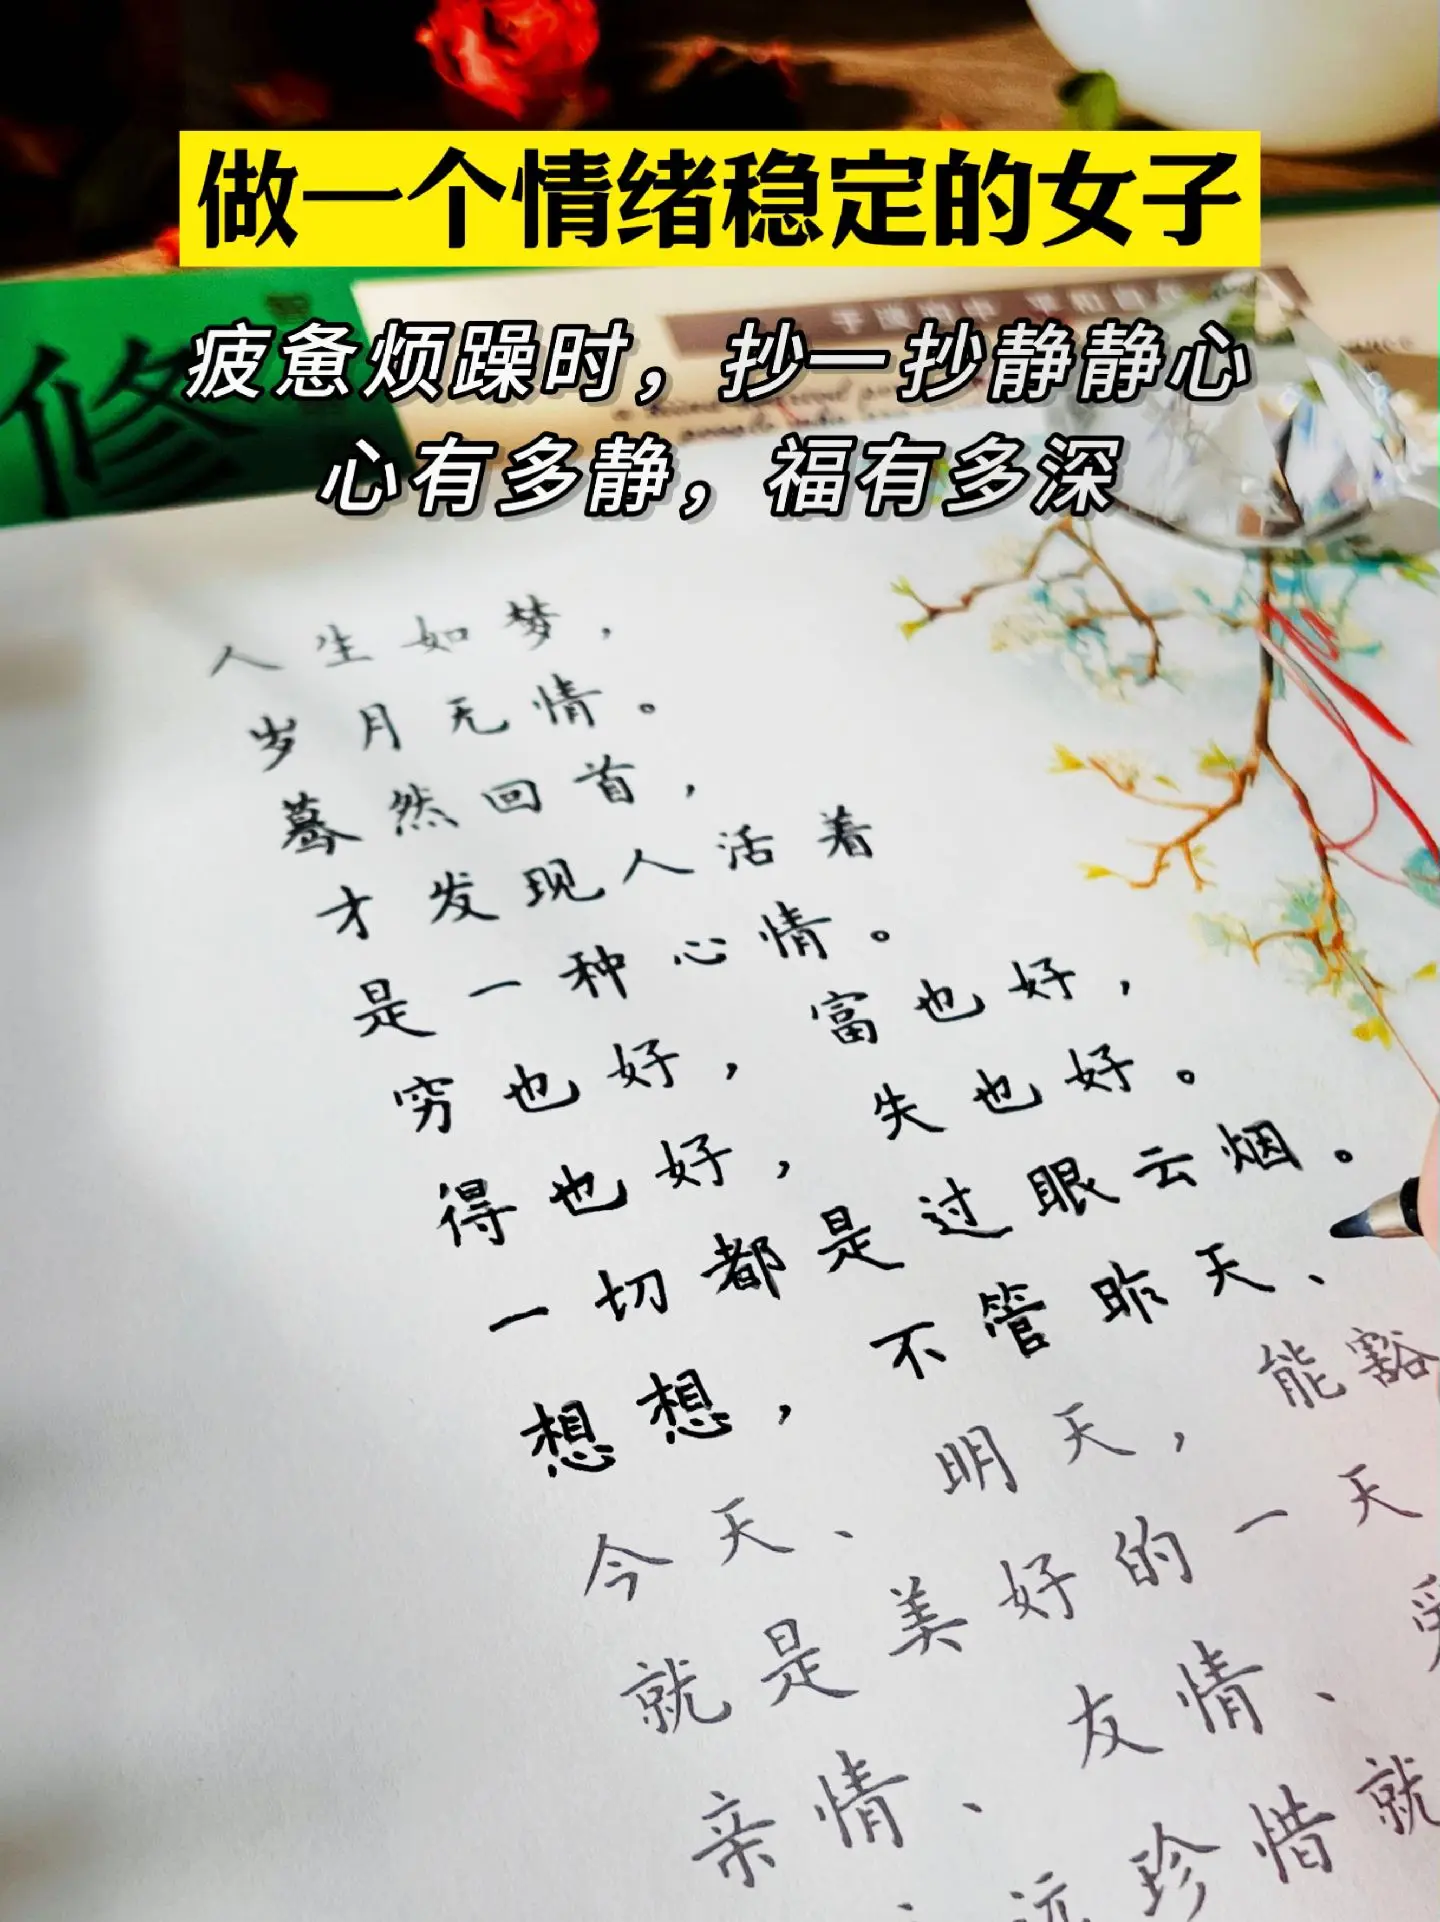 做一个情绪稳定的女子
疲惫烦躁时，抄一抄静静心
心有多静，福有多深
修
人生如梦，
岁月无情。
蓦然回首，
才发现人活着
是一种心情。
穷也好，富也好，
得也好，失也好。
一切都是过眼云烟。
想想，不管昨天、
今天、明天，能豁
就是美好的一天
亲情、友情、
珍惜就